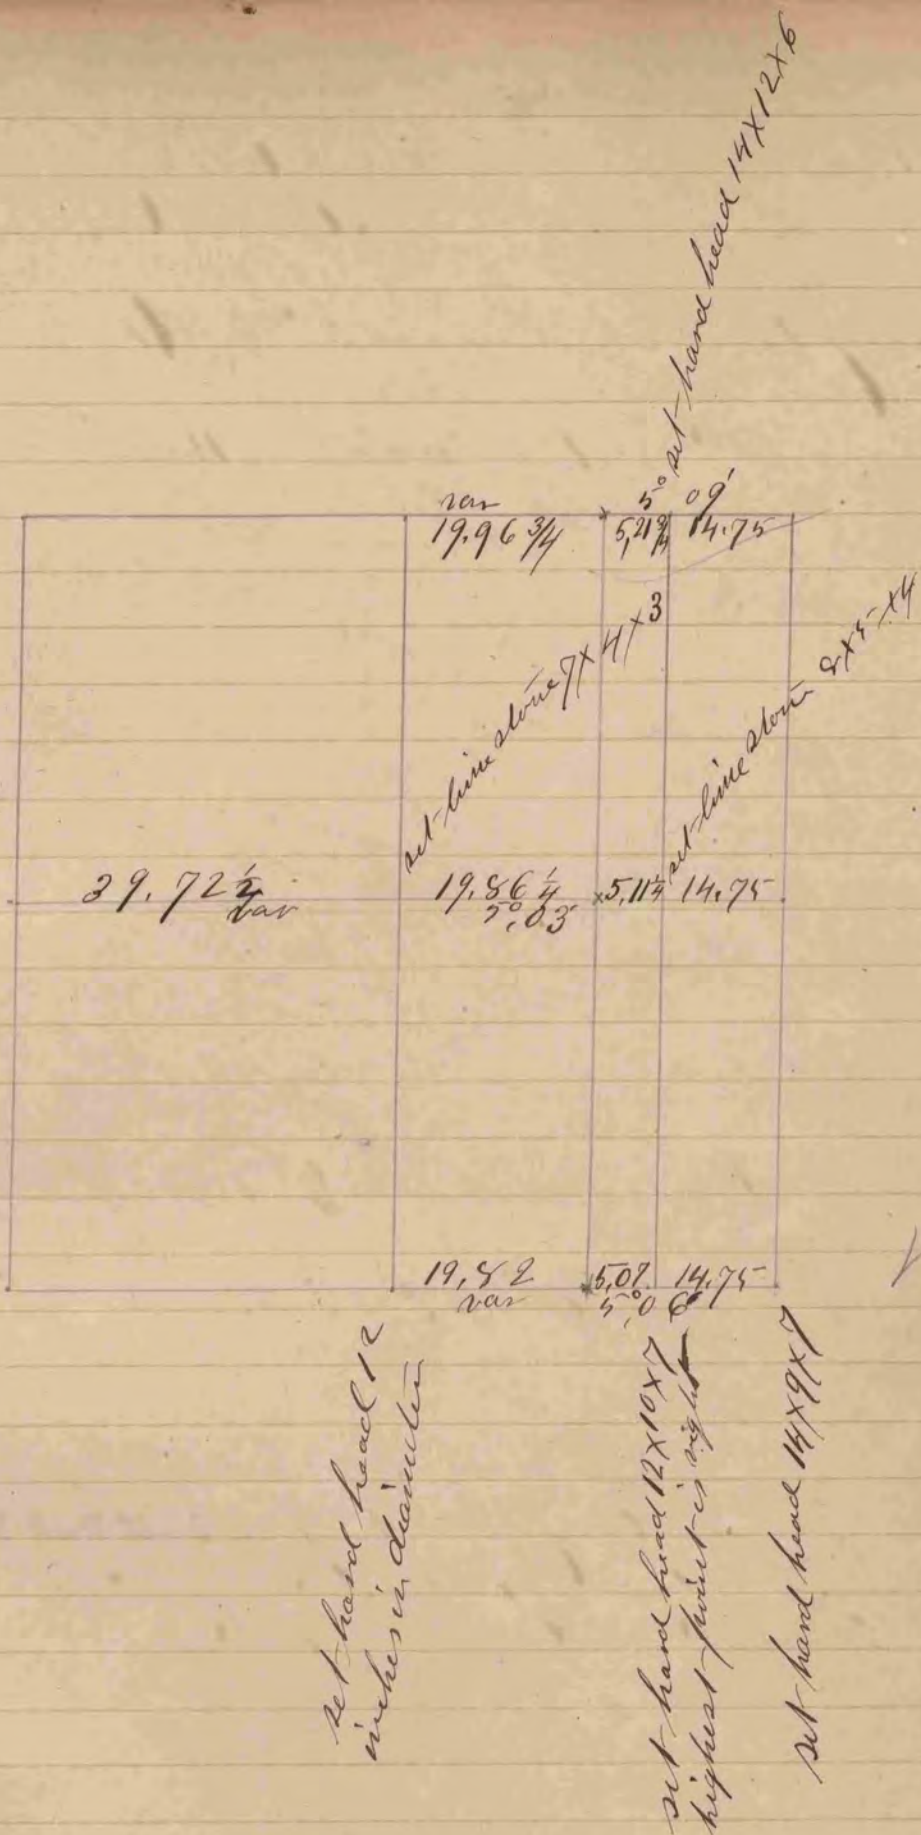 set hard head 14 x 12 x 6
var 5° 09'
19.96 3/4 5,21 3/4 14.75
set lime stone 7 x 4 x 3
set lime stone 8 x 5 x 4
39.72 1/2 19,86 1/4 5,11 1/4 14.75
var 5°,03
19,82 5,07 14.75
var 5°,06
set hard head 12
inches in diameter
set hard head 12 x 10 x 7
highest point is right
set hard head 14 x 9 x 7